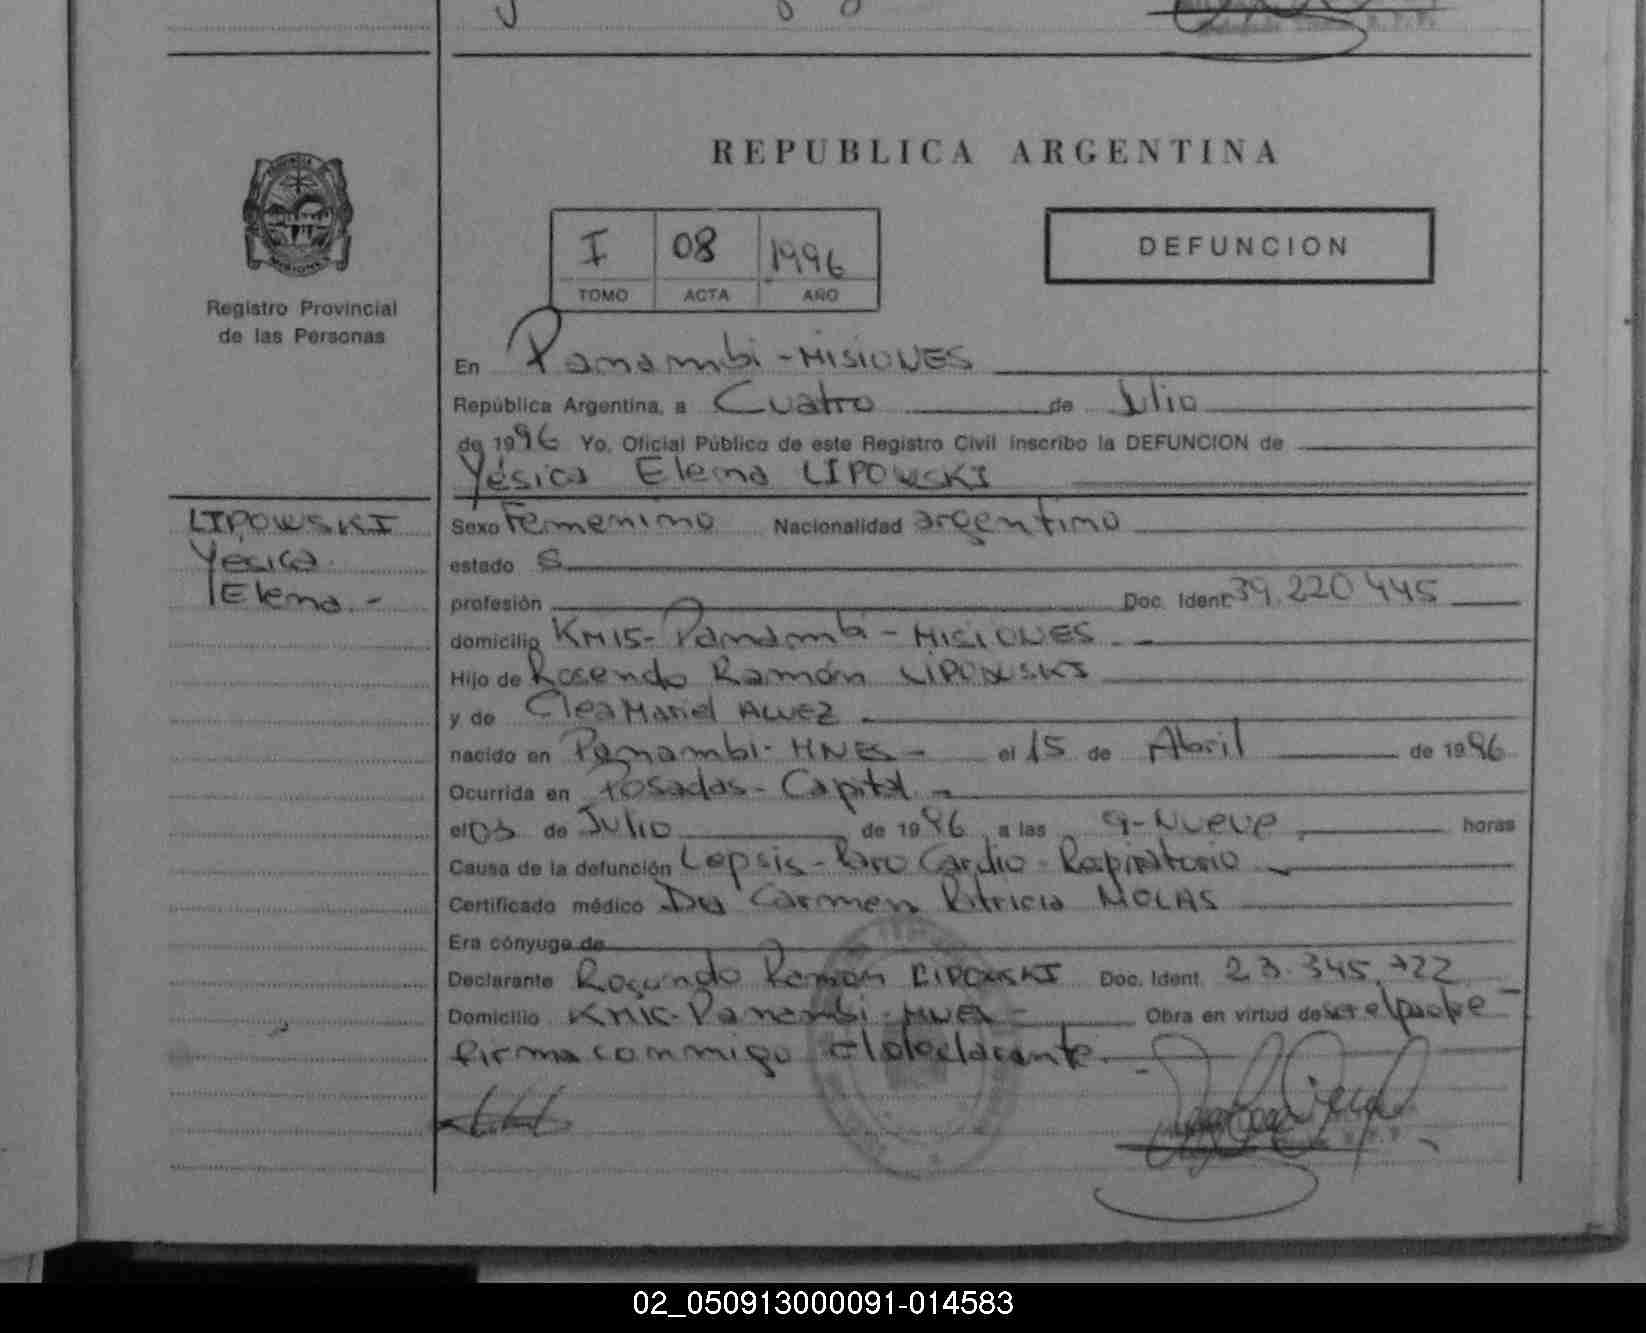 REPUBLICA ARGENTINA
I 08 1996
TOMO ACTA AÑO
DEFUNCION
Registro Provincial
de las Personas
En Panambi - MISIONES
República Argentina, a Cuatro de Julio
de 1996 Yo, Oficial Público de este Registro Civil inscribo la DEFUNCION de
Yésica Elena LIPOWSKI
LIPOWSKI
Yésica
Elena.-
Sexo Femenino Nacionalidad argentino
estado S
profesión Doc. Ident. 39.220.445
domicilio KM15- Panambi - MISIONES
Hijo de Rosendo Ramón LIPOWSKI
y de Clea Mariel ALVEZ
nacido en Panambi - MNES - el 15 de Abril de 1996
Ocurrida en Posadas - Capital -
el 03 de Julio de 1996 a las 9-Nueve horas
Causa de la defunción Cepsis - Paro Cardio - Respiratorio
Certificado médico Dra Carmen Patricia MOLAS
Era cónyuge de
Declarante Rosendo Ramón LIPOWSKI Doc. Ident. 23.345.722
Domicilio Panambi - MNES - Obra en virtud de ser el padre
firma conmigo el declarante.
02_050913000091-014583